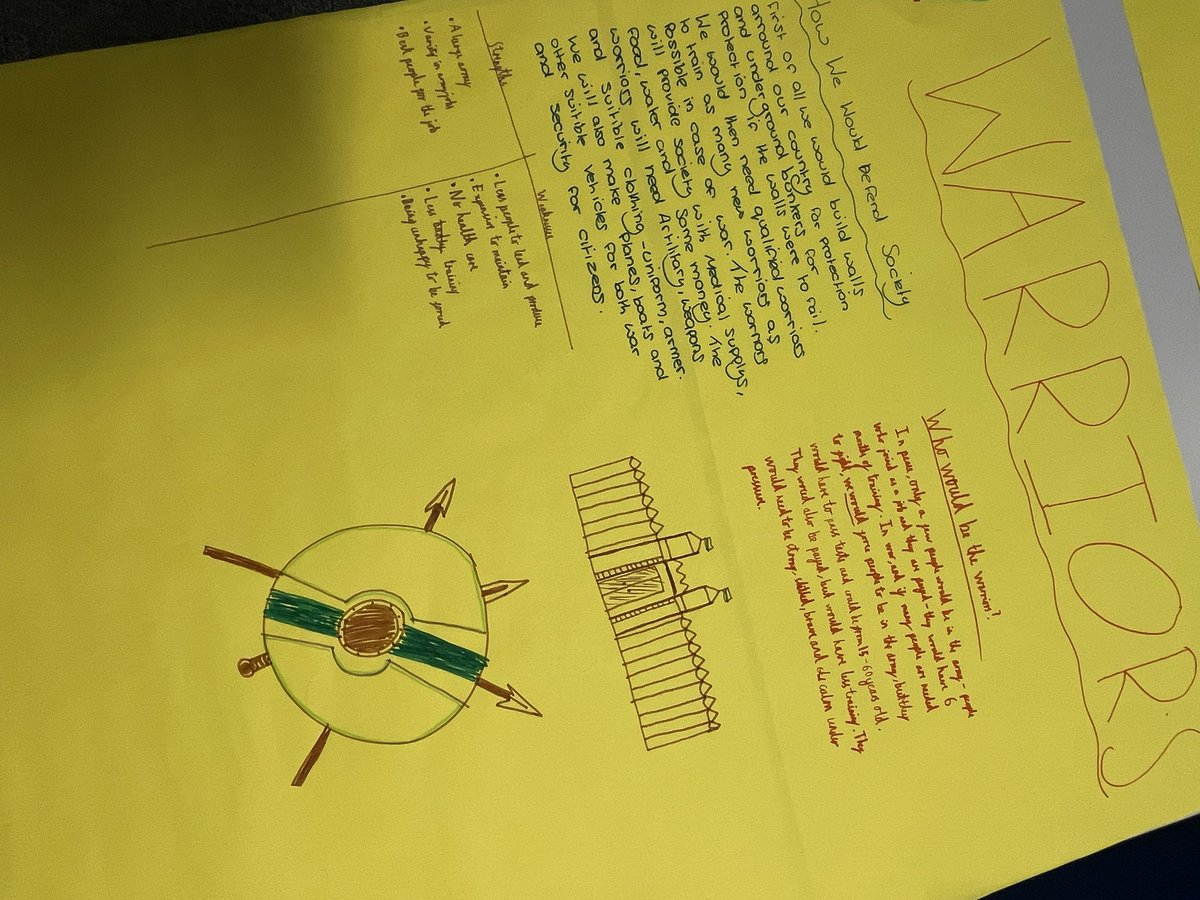 WARRIORS
How We Would Defend Society
First of all we would build walls
arround our country for protection
and underground bunkers for
protection if the walls were to fail.
We would then need qualified worriors
to train as many new worriors as
possible in case of war. The warriors
will provide society with Medical supplys,
food, water and some money. The
worriors will need Artilitary, weapons
and suitible clothing - uniform, armer.
We will also make planes, boats and
otter suitible vehicles for both war
and security for citizens.
Who would be the warriors?
In peace, only a few people would be in the army - people
who joined as a job and they are payed - they would have 6
months of training. In war, and if many people are needed
to fight, we would force people to be in the army, but they
would have to pass tests and could be from 15-60 years old.
They would also be payed, but would have less training. They
would need to be strong, skilled, brave and calm under
pressure.
Strengths
• A large army
• Variety in army jobs
• Best people for the job
Weaknesses
• Less people to lead and produce
• Expensive to maintain
• No health care
• Less training
• Being unhappy to be forced